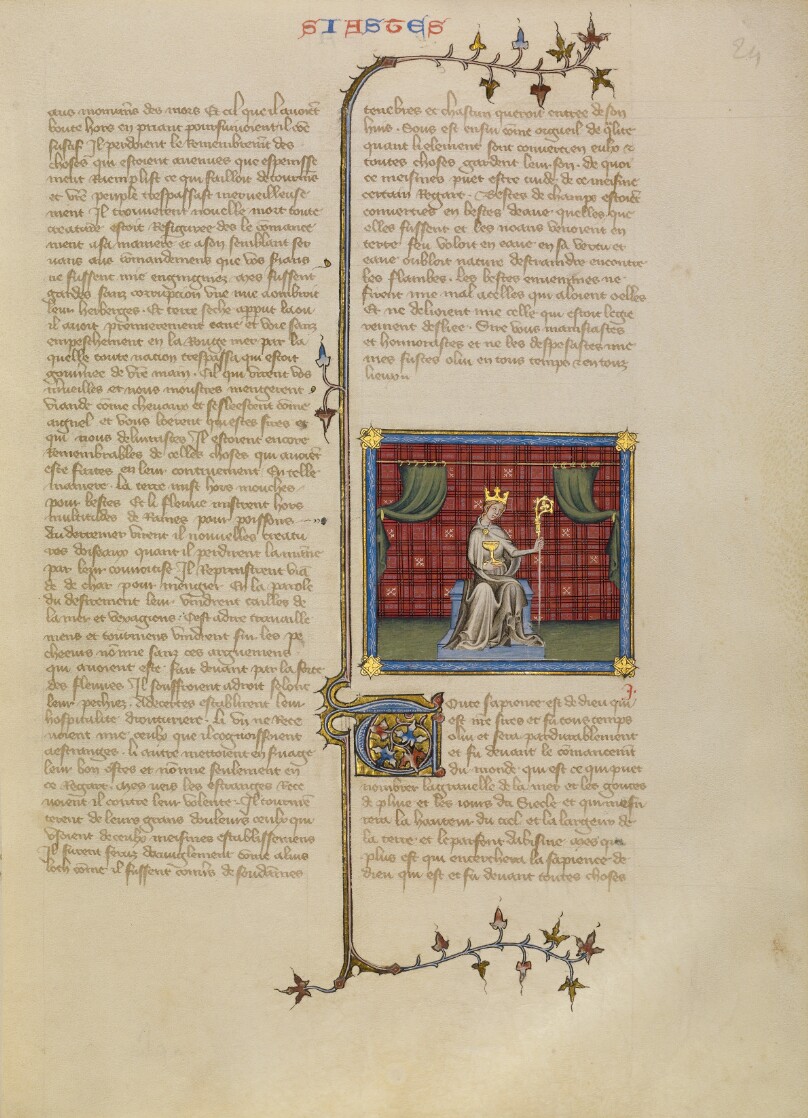 SIASTES
24
aus momans des mors Et cil que il auoiēt
boute hors en priant poursuiuoient il cōe
fuitif Il perdoient le Remembremt des
choses qui estoient auenues que espenisse
ment Raemplist ce qui failloit de tourmēs
et vrē pueple trespassast merueilleuse
ment Il trouuerent nouelle mort toute
creature estoit Refiguree des le cōmance
ment a sa maniere et a son semblant ser
uans aus cōmandemens que vos
ne fussent mie engingniez axes fussent
gardes sanz corrupcion vne nue aombroit
leur herberges Et terre seche apput la ou
il auoit premierement eaue et voie sanz
empeschement en la Rouge mer par la
quelle toute nacion trespassa qui estoit
gouunee de vrē main Cil qui virent vos
merueilles et nous monstres mengierent
viande cōme cheuaux et sesleescent cōme
aignel et vous loerent
qui nous deliurastes Il estoient encore
Remembrables de celles choses qui auoiēt
este faites en leur En celle
maniere la terre mist hors mouches
pour bestes Et li fleuue mistrent hors
multitudes de Raines pour poissons
Au derrenier virent il nouuelles creatu
res doiseaux quant il perdirent la maniē
par leur couuoitise Il Repristrent viā
de de char pour mengier En la parole
du desirement leur vindrent cailles de
la mer et vexacions Cest adire trauaille
mens et tourmens vindrent sur les pe
cheeurs nō mie sanz ces arguemens
qui auoient este fait deuant par la force
des fleuues Il souffroient adroit selonc
leur pechiez Adecertes establirent leur
hospitalite droituriere li vn ne Rece
uoient mie ceulx que il cognoissoient
aestranges li autre mettoient en seruage
leur bon ostes et nō mie seulement en
ce Regart mes vers les estranges Rece
uoient il contre leur volente Il tourmē
terent de leurs grans douleurs ceulx qui
vsoient de ceulx meismes establissemens
Il furent feruz dauuglement cōme
loth cōme il fussent couūs de soudaines
tenebres et chascun queroit entree de son
huis Sous est ensur cōme orgueil de qlite
quant li element sont conuerti en eulx
toutes choses gardent leur son de quoi
ce meismes puet estre cuide de ce meisme
certain Regart Bestes de champs estoiēt
conuerties en bestes deaue quelles que
elles fussent et les noans venoient en
terre feu valoit en eaue en sa vertu et
eaue oublioit nature destraindre encontre
les flambes les bestes enuenimees ne
firent mie mal a celles qui aloient o elles
Et ne delioient mie celle qui estoit legie
rement desliee Sire vous manifiastes
et honnorastes et ne les despisastes mie
mes fustes olui en tous temps et en touz
lieux
J.
Toute sapience est de dieu qui
est nre sires et fu tous temps
olui et sera pardurablement
et fu deuant le cōmancemt
du monde qui est ce qui puet
nombrer la grauelle de la mer et les goutes
de pluie et les iours du Siecle et qui mesu
rera la hautour du ciel et la largeur de
la terre et le parfont dabisme axes qui
plus est qui encerchera la sapience de
dieu qui est et fu deuant toutes choses